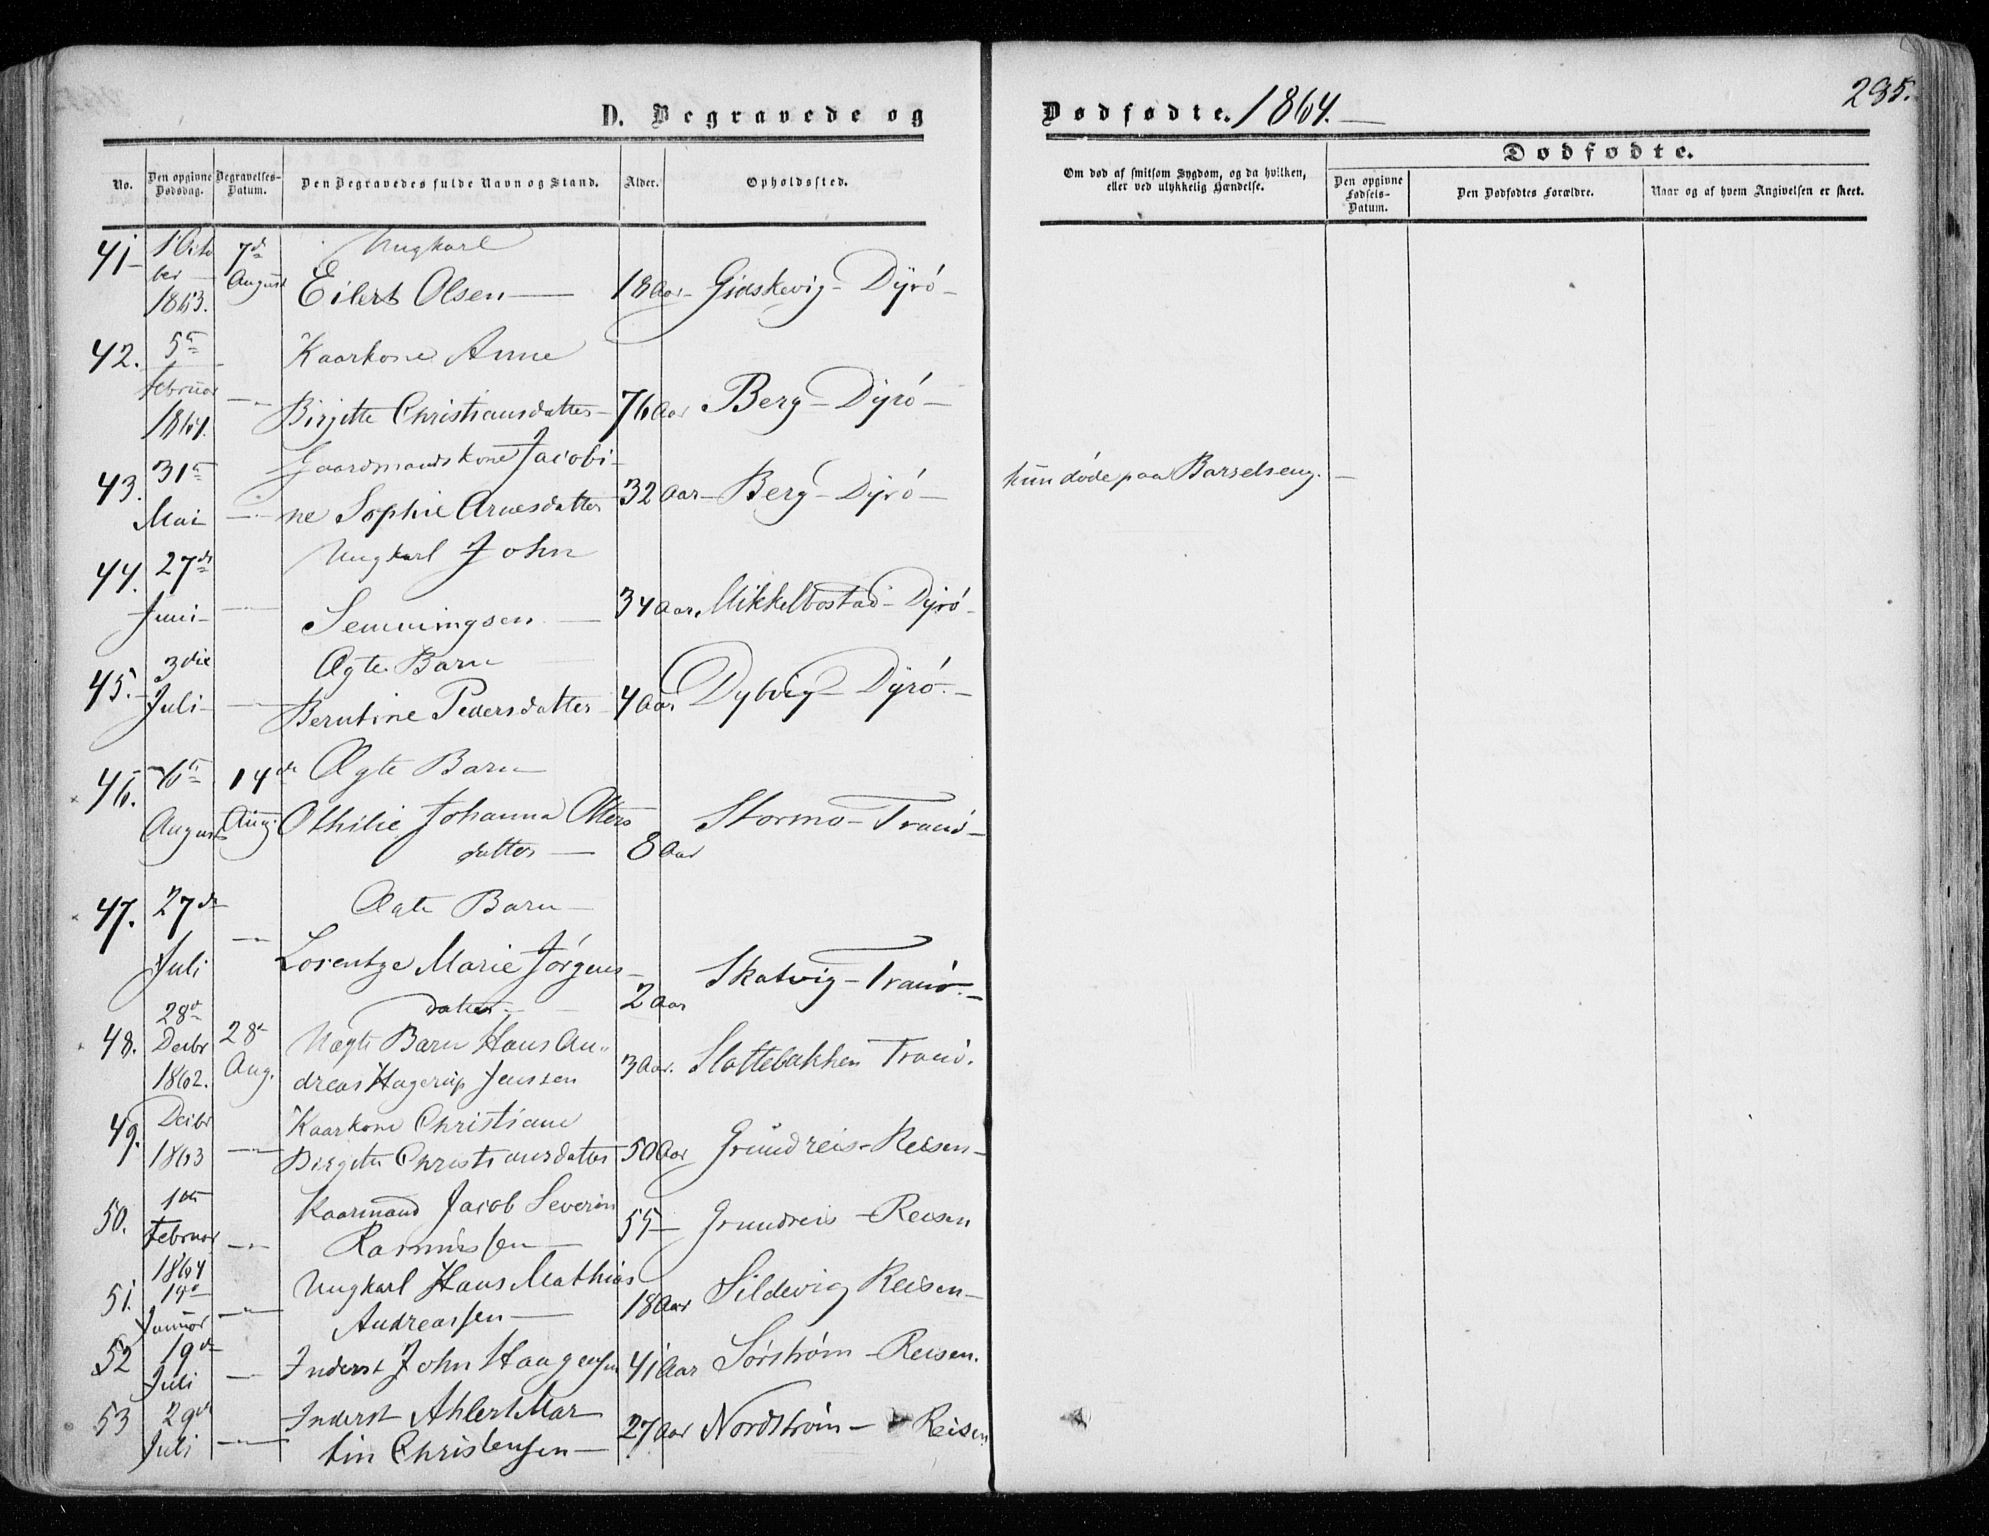 D. Begravede og Dødfødte. 1864.
285.
No.
Den opgivne Dødsdag.
Begravelses-Datum.
Den Begravedes fulde Navn og Stand.
Alder.
Opholdssted.
Om død af smitsom Sygdom, og da hvilken,
eller ved ulykkelig Hændelse.
Dødfødte.
Den opgivne Fødsels-Datum.
Den Dødfødtes Forældre.
Naar og af hvem Angivelsen er skeet.
41 1 Octo 7d Ungkarl
ber August Eilert Olsen 18 Aar Gidskevig - Dyrö
1863.
42. 5te Kaarkone Anne
Februar Birgitte Christiansdatter 76 Aar Berg - Dyrö
1864.
43. 31te Gaardmandskone Jacobi-
Mai ne Sophie Arnesdatter 32 Aar Berg - Dyrö hun døde paa Barselseng.
44. 27de Ungkarl John
Juni Semmingsen 34 Aar. Mikkelbostad - Dyrö
45. 3die Ægte Barn
Juli Berntine Pedersdatter 4 Aar Dybvig - Dyrö
46. 6te 14de Ægte Barn
August Aug. Othilie Johanna Otters
datter 8 Aar Stormo - Tranö
47. 27de Ægte Barn
Juli Lorentze Marie Jörgens
datter 2 Aar Skatvig - Tranö
28d
48. Decbr 28d Uægte Barn Hans An-
1862. Aug. dreas Hagerup Jenssen 3 Aar. Slottebakken Tranö.
49. Decbr Kaarkone Christiane
1863 Birgitte Christiansdatter 50 Aar Grundreis - Reisen
50. 1ste Kaarmand Jacob Severin
Februar Rasmussen 55 Grundreis - Reisen
1864
51. 14d Ungkarl Hans Mathias
Januar Andreassen 18 Aar Sildevig Reisen
52 19de Inderst John Haagensen 41 Aar Sörström - Reisen.
Juli
53 29de Inderst Ahlert Mar
Juli tin Christensen 27 Aar Nordström - Reisen